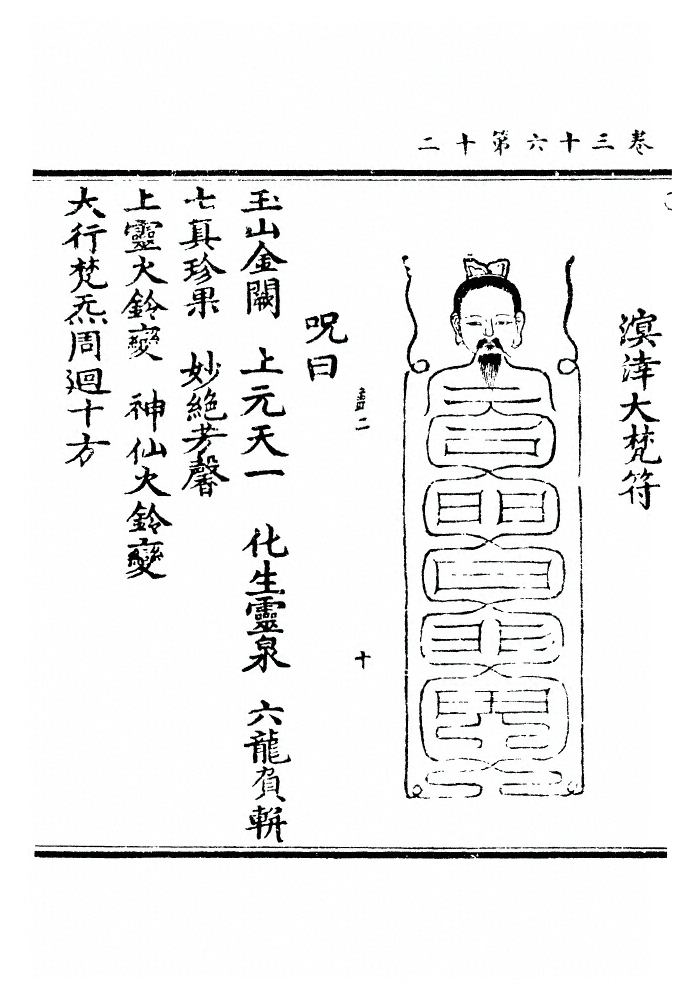 卷三十六第十二
溟涬大梵符
盡二
十
呪曰
玉山金闕　上元天一　化生靈泉　六龍負輧
七真珍果　妙絶芳馨
上靈火鈴變　神仙火鈴變
大行梵炁周迴十方